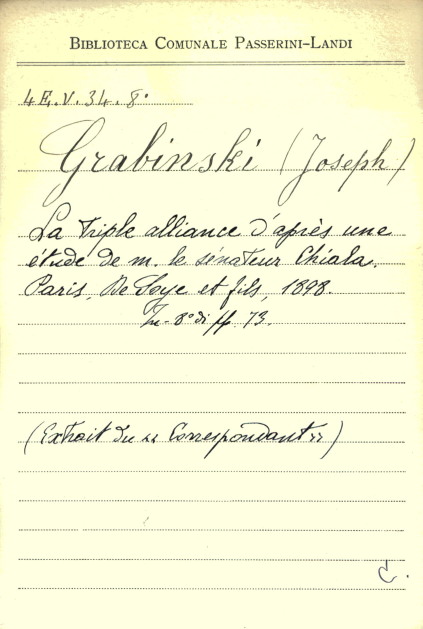 BIBLIOTECA COMUNALE PASSERINI-LANDI
4E.V.34.8°
Grabinski (Joseph)
La Triple alliance d'après une
étude de m. le sénateur Chiala.
Paris, De Soye et fils, 1898.
In-8° di ff 73.
(Extrait du "Correspondant")
C.